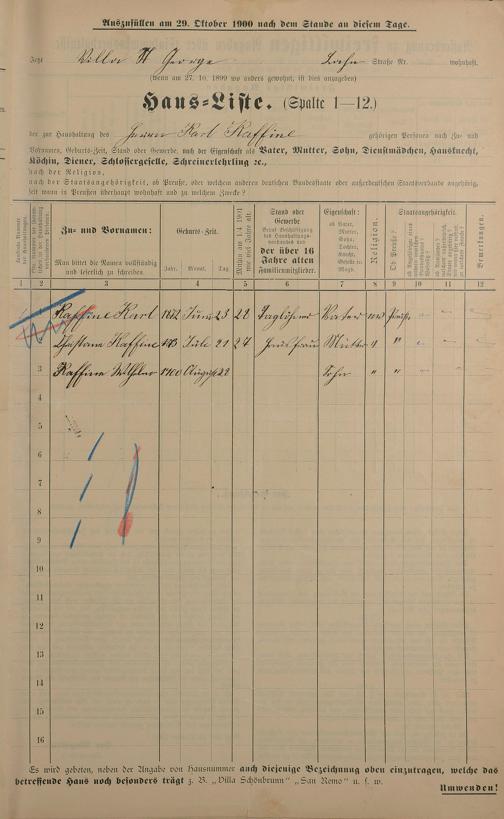 Auszufüllen am 29. Oktober 1900 nach dem Stande an diesem Tage.
Jetzt Villa St George Lahn Straße Nr. wohnhaft.
(Wenn am 27. 10. 1899 wo anders gewohnt, ist dies anzugeben)
Haus-Liste. (Spalte 1—12.)
der zur Haushaltung des Herrn Karl Kaffine gehörigen Personen nach Zu- und
Vornamen, Geburts-Zeit, Stand oder Gewerbe, nach der Eigenschaft als Vater, Mutter, Sohn, Dienstmädchen, Hausknecht,
Köchin, Diener, Schlossergeselle, Schreinerlehrling ꝛc.,
nach der Religion,
nach der Staatsangehörigkeit, ob Preuße, oder welchen anderen deutschen Bundesstaate oder außerdeutschen Staatsverbande angehörig,
seit wann in Preußen überhaupt wohnhaft und zu welchem Zwecke?
Zu- und Vornamen:
Man bittet die Namen vollständig
und leserlich zu schreiben.
Geburts-Zeit.
Jahr. Monat. Tag
Stand oder
Gewerbe
der über 16
Jahre alten
Familienmitglieder.
Eigenschaft:
ob Vater,
Mutter,
Sohn,
Tochter,
Knecht,
Geselle
Magd.
Religion.
Staatsangehörigkeit.
Ob Preuße?
Bemerkungen.
1 2 3 4 5 6 7 8 9 10 11 12
Kaffine Karl 1872 Juni 23 Taglöhner Vater
Kaffine Juli 21 27 Hausfrau Mutter " "
3 Kaffine Wilhelm 1900 August 22 Sohn " "
4
5
6
7
8
9
10
11
12
13
14
15
16
Es wird gebeten, neben der Angabe von Hausnummer auch diejenige Bezeichnung oben einzutragen, welche das
betreffende Haus noch besonders trägt z. B. „Villa Schönbrunn" „San Remo" u. s. w.
Umwenden!